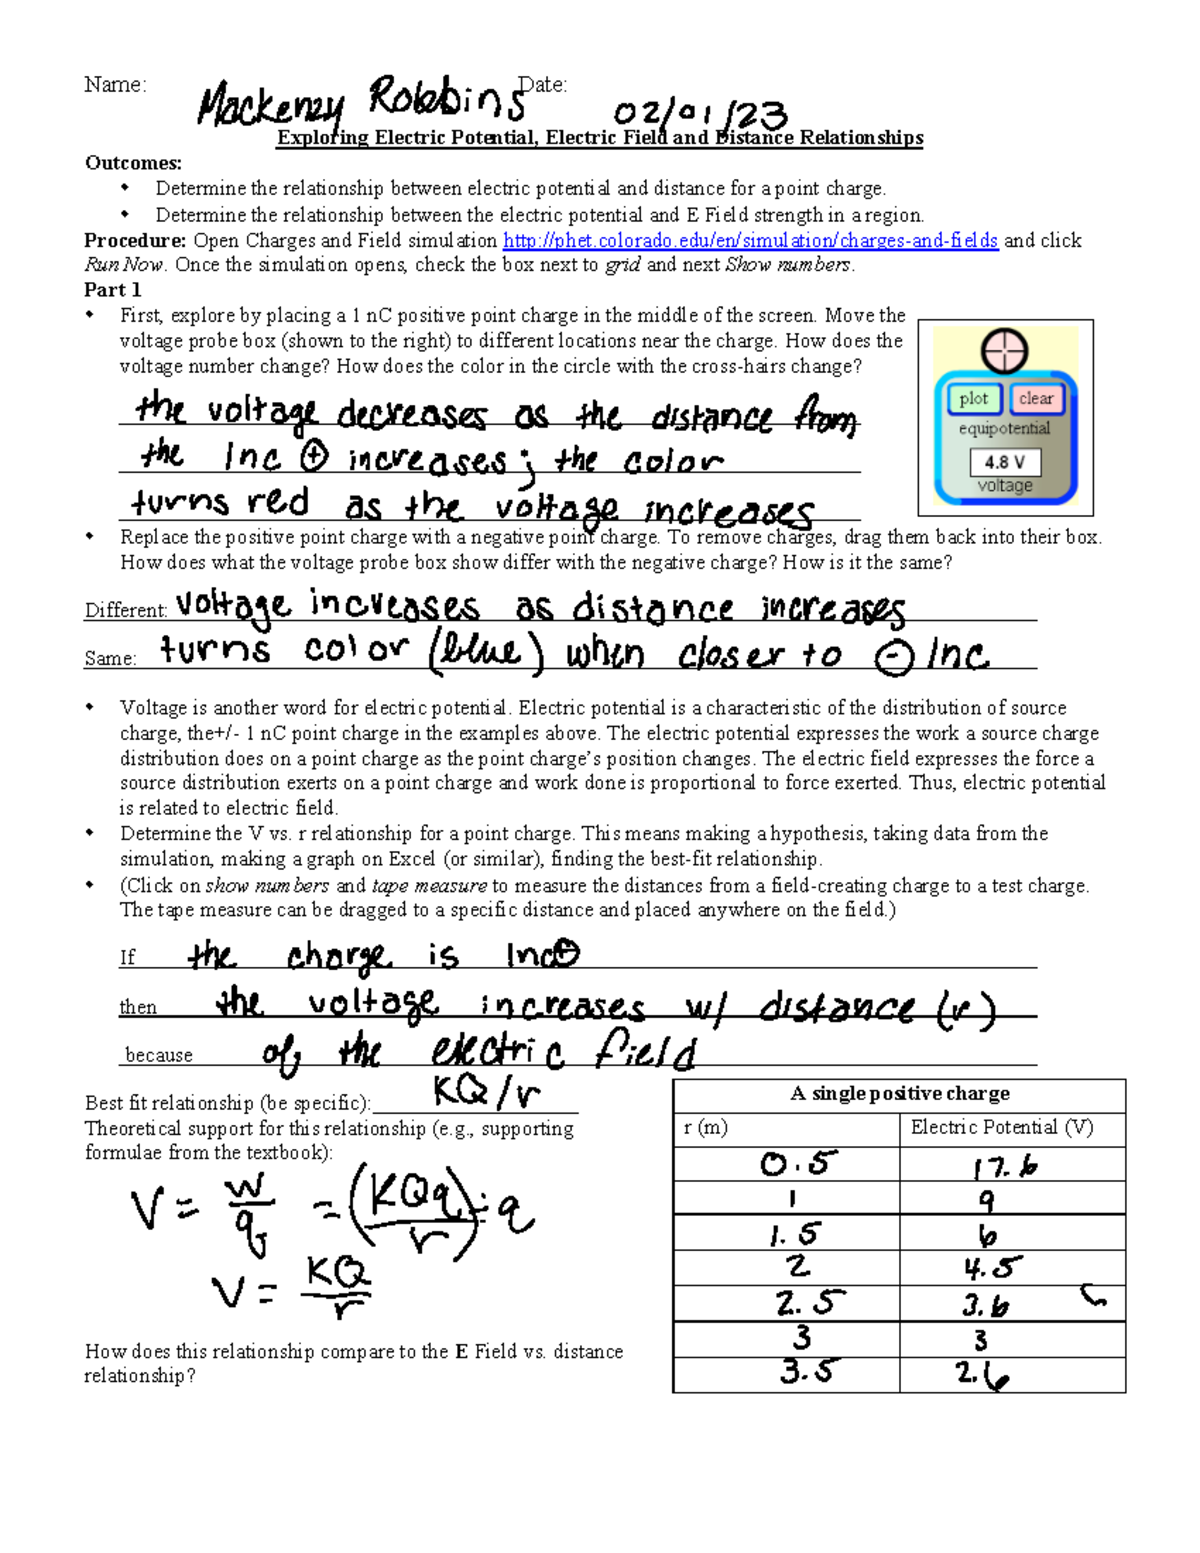 Name: Mackenzy Robbins Date: 02/01/23
Exploring Electric Potential, Electric Field and Distance Relationships
Outcomes:
• Determine the relationship between electric potential and distance for a point charge.
• Determine the relationship between the electric potential and E Field strength in a region.
Procedure: Open Charges and Field simulation http://phet.colorado.edu/en/simulation/charges-and-fields and click
Run Now. Once the simulation opens, check the box next to grid and next Show numbers.
Part 1
• First, explore by placing a 1 nC positive point charge in the middle of the screen. Move the
voltage probe box (shown to the right) to different locations near the charge. How does the
voltage number change? How does the color in the circle with the cross-hairs change?
plot clear
equipotential
4.8 V
voltage
the voltage decreases as the distance from
the 1nc ⊕ increases; the color
turns red as the voltage increases
• Replace the positive point charge with a negative point charge. To remove charges, drag them back into their box.
How does what the voltage probe box show differ with the negative charge? How is it the same?
Different: voltage increases as distance increases
Same: turns color (blue) when closer to ⊖ 1nc
• Voltage is another word for electric potential. Electric potential is a characteristic of the distribution of source
charge, the+/- 1 nC point charge in the examples above. The electric potential expresses the work a source charge
distribution does on a point charge as the point charge's position changes. The electric field expresses the force a
source distribution exerts on a point charge and work done is proportional to force exerted. Thus, electric potential
is related to electric field.
• Determine the V vs. r relationship for a point charge. This means making a hypothesis, taking data from the
simulation, making a graph on Excel (or similar), finding the best-fit relationship.
• (Click on show numbers and tape measure to measure the distances from a field-creating charge to a test charge.
The tape measure can be dragged to a specific distance and placed anywhere on the field.)
If the charge is 1nc⊕
then the voltage increases w/ distance (r)
because of the electric field
Best fit relationship (be specific): KQ/r
Theoretical support for this relationship (e.g., supporting
formulae from the textbook):
V = w/q = (KQq/r) ÷ q
V = KQ/r
How does this relationship compare to the E Field vs. distance
relationship?
A single positive charge
r (m) Electric Potential (V)
0.5 17.6
1 9
1.5 6
2 4.5
2.5 3.6
3 3
3.5 2.6